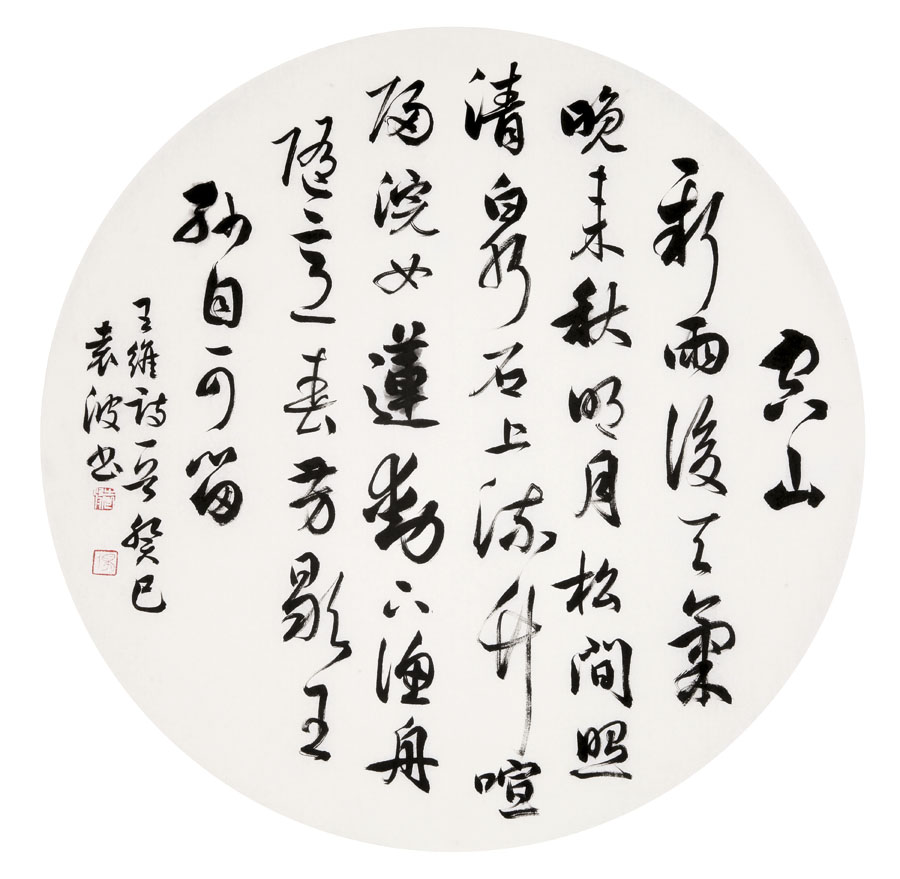 空山
新雨後天氣
晚来秋明月松間照
清泉石上流竹喧
歸浣女蓮動下漁舟
隨意春芳歇王
孫自可留
王維詩一首癸巳
袁波书